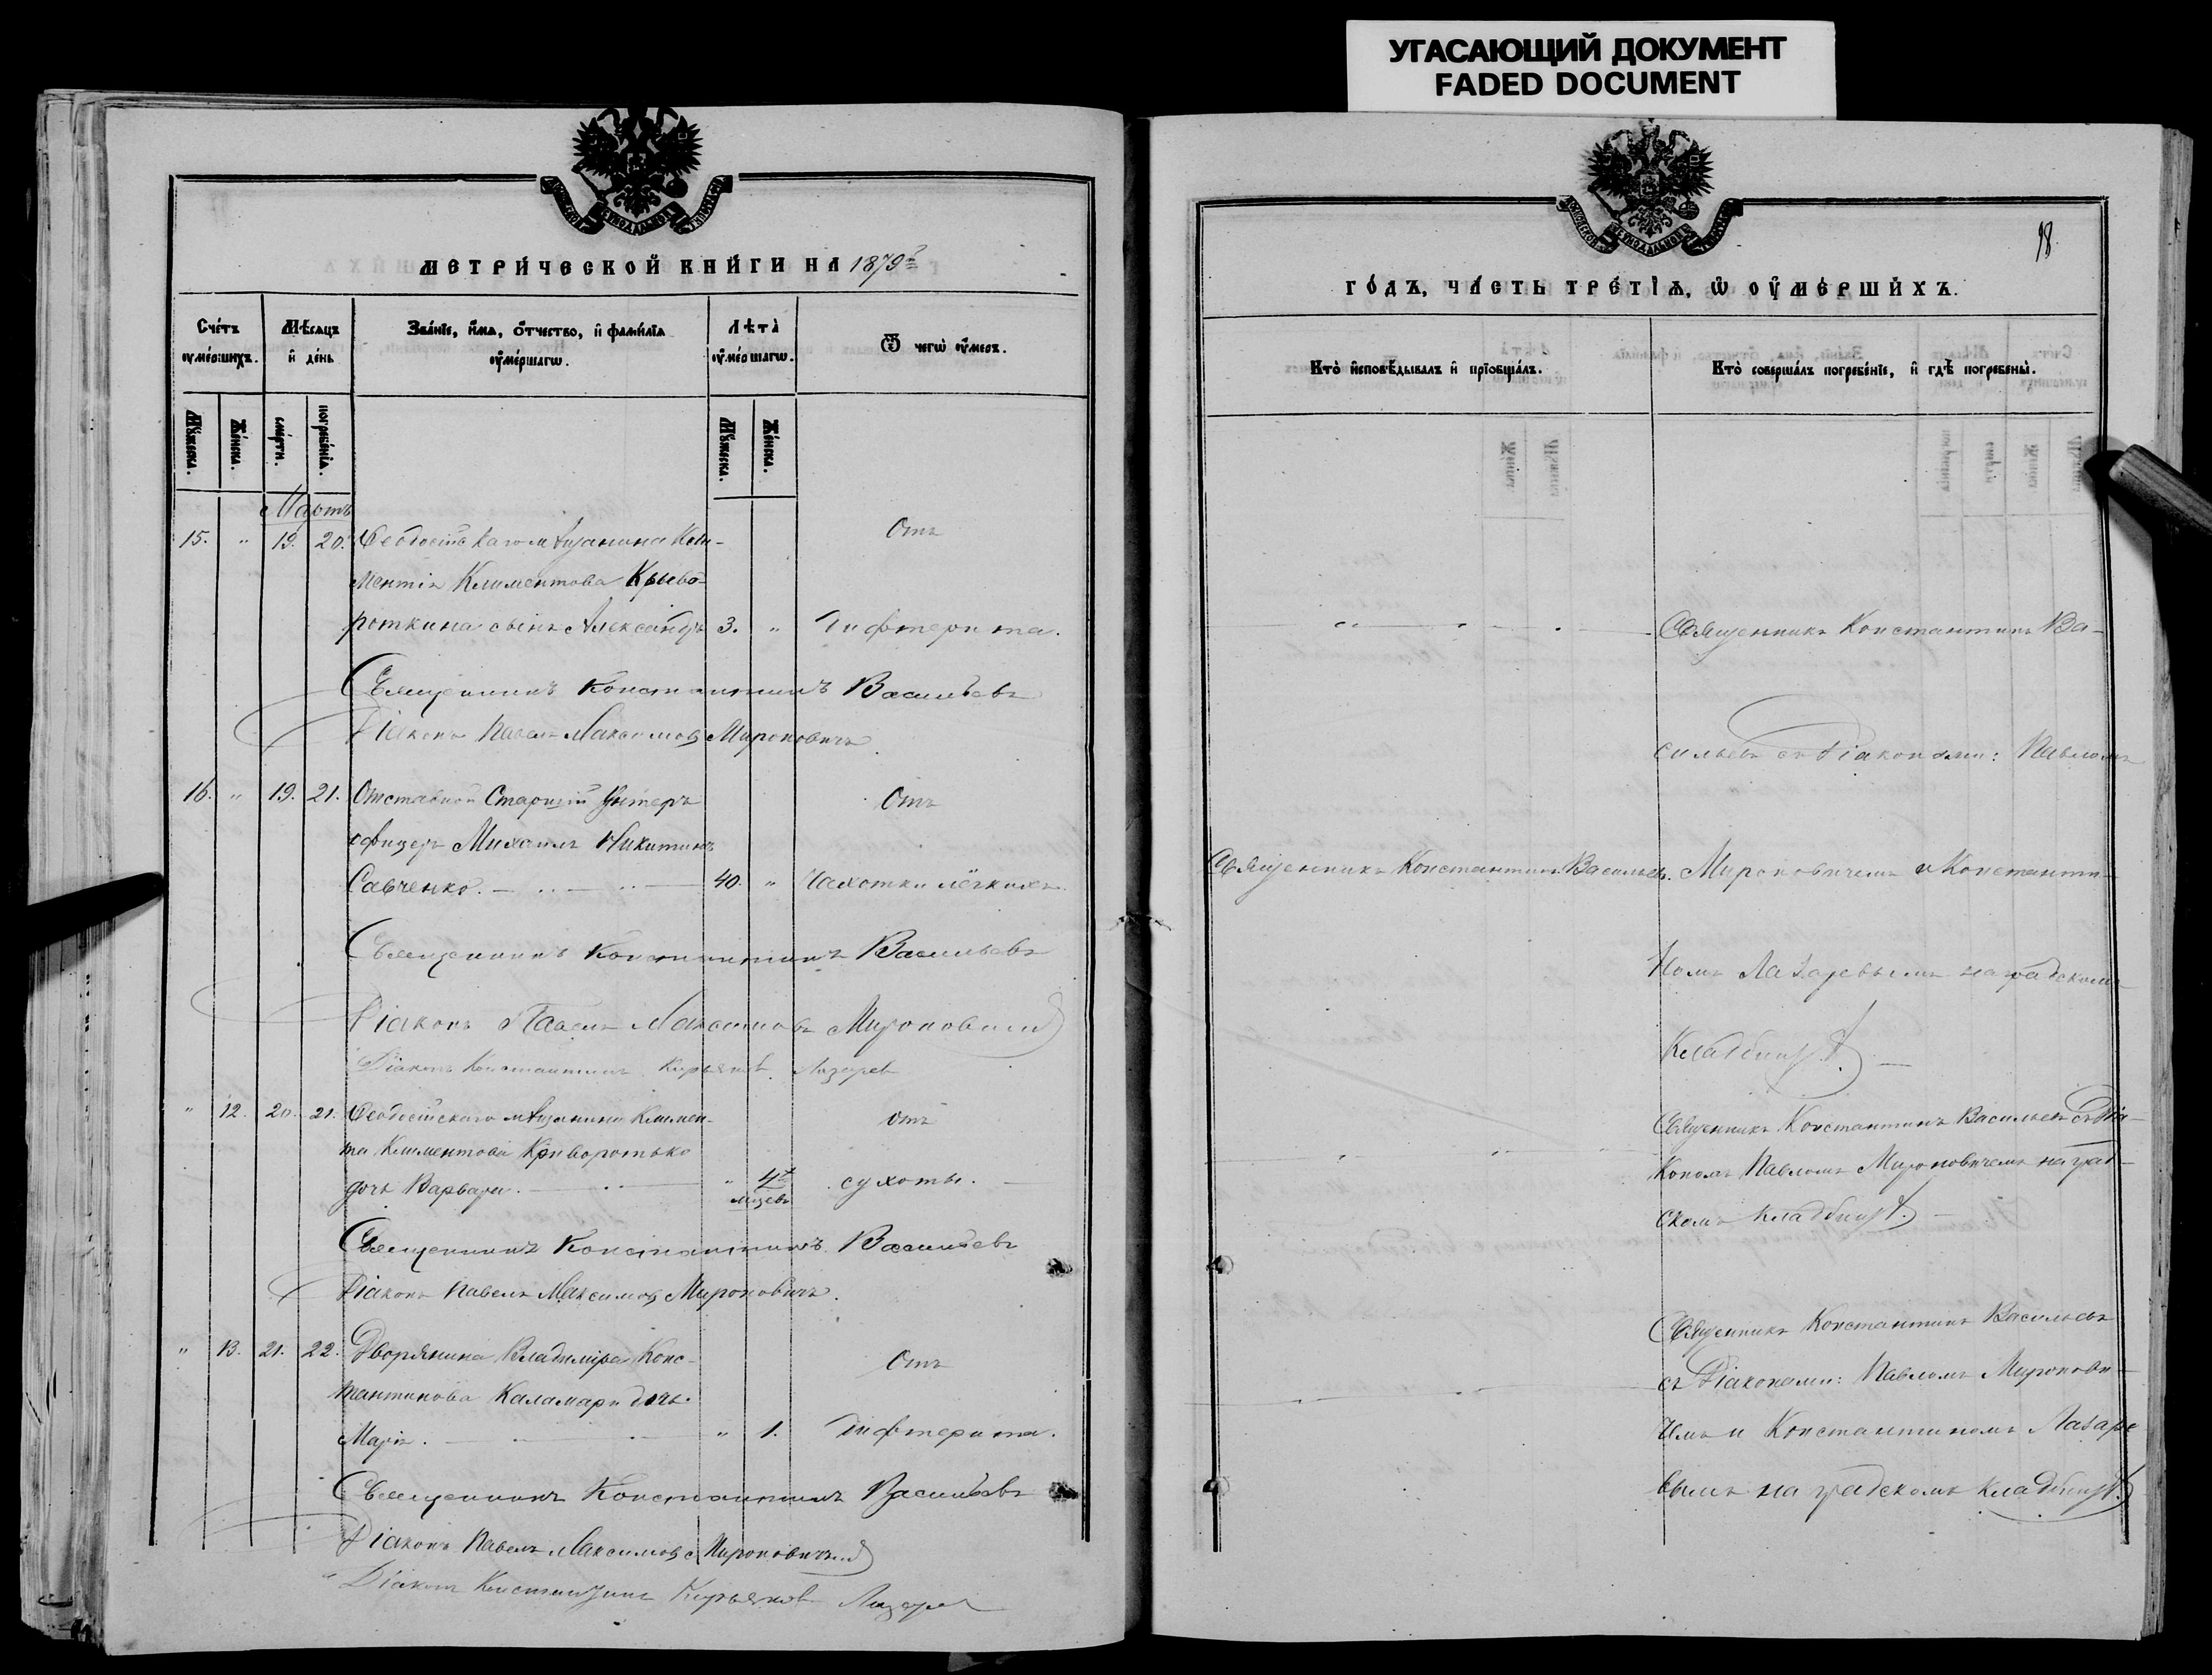 УГАСАЮЩИЙ ДОКУМЕНТ
FADED DOCUMENT
МЕТРИ́ЧЕСКОЙ КНИ́ГИ НА 1879 г.
Счéтъ ᲂу҆мéршихъ.
Мѣ́сяцъ и҆ дéнь
Звáнїе, и҆́мѧ, ѻ҆́тчество, и҆ фамѝлїѧ ᲂу҆мéршагѡ.
Лѣ́та ᲂу҆мéршагѡ.
Ѿ чегѡ̀ ᲂу҆́меръ.
Мꙋ́жеска.
Жéнска.
смéрти.
погребéнїѧ.
Мꙋ́жеска.
Жéнска.
Мартъ
15. " 19. 20. Ѳеодосійскаго мѣщанина Кли-
Отъ
ментія Климентова Крыво-
роткина сынъ Александръ 3. " Дифтерита.
Священникъ Константинъ Васильевъ
Діаконъ Павелъ Максимовъ Мироновичъ
16. " 19. 21. Отставной Старшій Унтеръ
Отъ
офицеръ Михаилъ Никитинъ
Савченко. 40. " Чахотки лёгкихъ.
Священникъ Константинъ Васильевъ
Діаконъ Павелъ Максимовъ Мироновичъ
Діаконъ Константинъ Лазарев
" 12. 20. 21. Ѳеодосійскаго мѣщанина Климен-
отъ
та Климентова Криворотько
дочь Варвара. " 4 сухоты.
мѣсяцевъ
Священникъ Константинъ Васильевъ
Діаконъ Павелъ Максимовъ Мироновичъ.
" 13. 21. 22. Дворянина Владиміра Конс-
Отъ
тантинова Каламари дочь
Марія. " 1. Дифтерита.
Священникъ Константинъ Васильевъ
Діаконъ Павелъ Максимовъ Мироновичъ
Діаконъ Константинъ Лазарев
98.
ГО́ДЪ, ЧА́СТЬ ТРЕ́ТЇѦ, Ѡ҆ ОУ҆МЕ́РШИХЪ.
Ктò и҆сповѣ́дывалъ и҆ прїобщáлъ.
Ктò совершáлъ погребéнїе, и҆ гдѣ̀ погребены̀.
Священникъ Константинъ Ва-
сильевъ съ Діаконами: Павломъ
Священникъ Константинъ Васильевъ. Мироновичемъ и Константи-
номъ Лазаревымъ на градскомъ
Кладбищѣ.
Священникъ Константинъ Васильевъ съ Діа-
кономъ Павломъ Мироновичемъ на град-
скомъ кладбищѣ.
Священникъ Константинъ Васильевъ
съ Діаконами: Павломъ Миронови-
чемъ и Константиномъ Лазаре-
вымъ на градскомъ кладбищѣ.